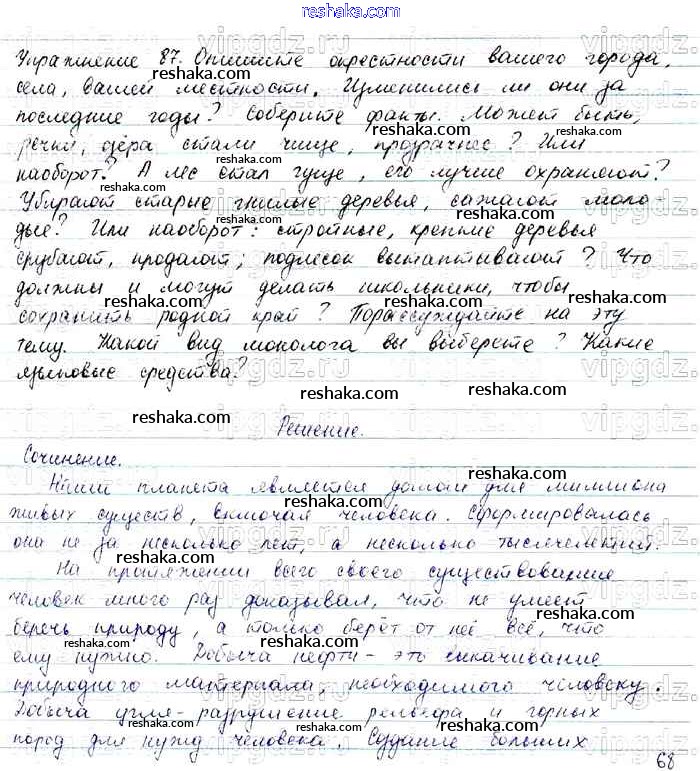 Упражнение 87. Опишите окрестности вашего города,
села, вашей местности. Изменились ли они за
последние годы? Соберите факты. Может быть,
речки, озёра стали чище, прозрачнее? Или
наоборот? А лес стал гуще, его лучше охраняют?
Убирают старые гнилые деревья, сажают моло-
дые? Или наоборот: стройные, крепкие деревья
срубают, продают; подлесок вытаптывают? Что
должны и могут делать школьники, чтобы
сохранить родной край? Порассуждайте на эту
тему. Какой вид монолога вы выберете? Какие
языковые средства?
Решение.
Сочинение.
Наша планета является домом для миллиона
живых существ, включая человека. Сформировалась
она не за несколько лет, а несколько тысячелетий.
На протяжении всего своего существования
человек много раз доказывал, что не умеет
беречь природу, а только берёт от неё всё, что
ему нужно. Добыча нефти - это выкачивание
природного материала, необходимого человеку.
Добыча угля - разрушение рельефа и горных
пород для нужд человека. Создание больших
68
reshaka.com
vipgdz.ru